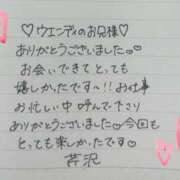 ♡ウエンディのお兄様♡
ありがとうございました♡♡
お会いできてとっても
嬉しかったです!!お仕事
お忙しい中呼んで下さり
ありがとうございました♡今回も
とっても楽しかったです♡
芹沢